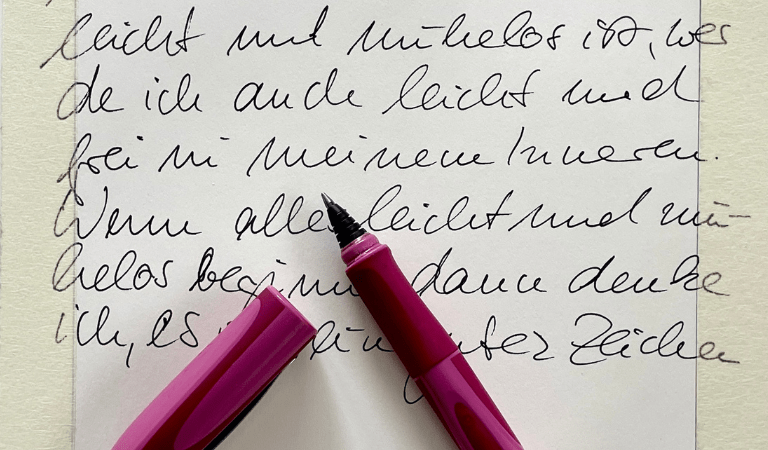 leicht und mühelos ist, wer
de ich auch leicht und
frei in meinem Inneren.
Wenn alles leicht und mü-
helos dann denke
ich, es Zeichen